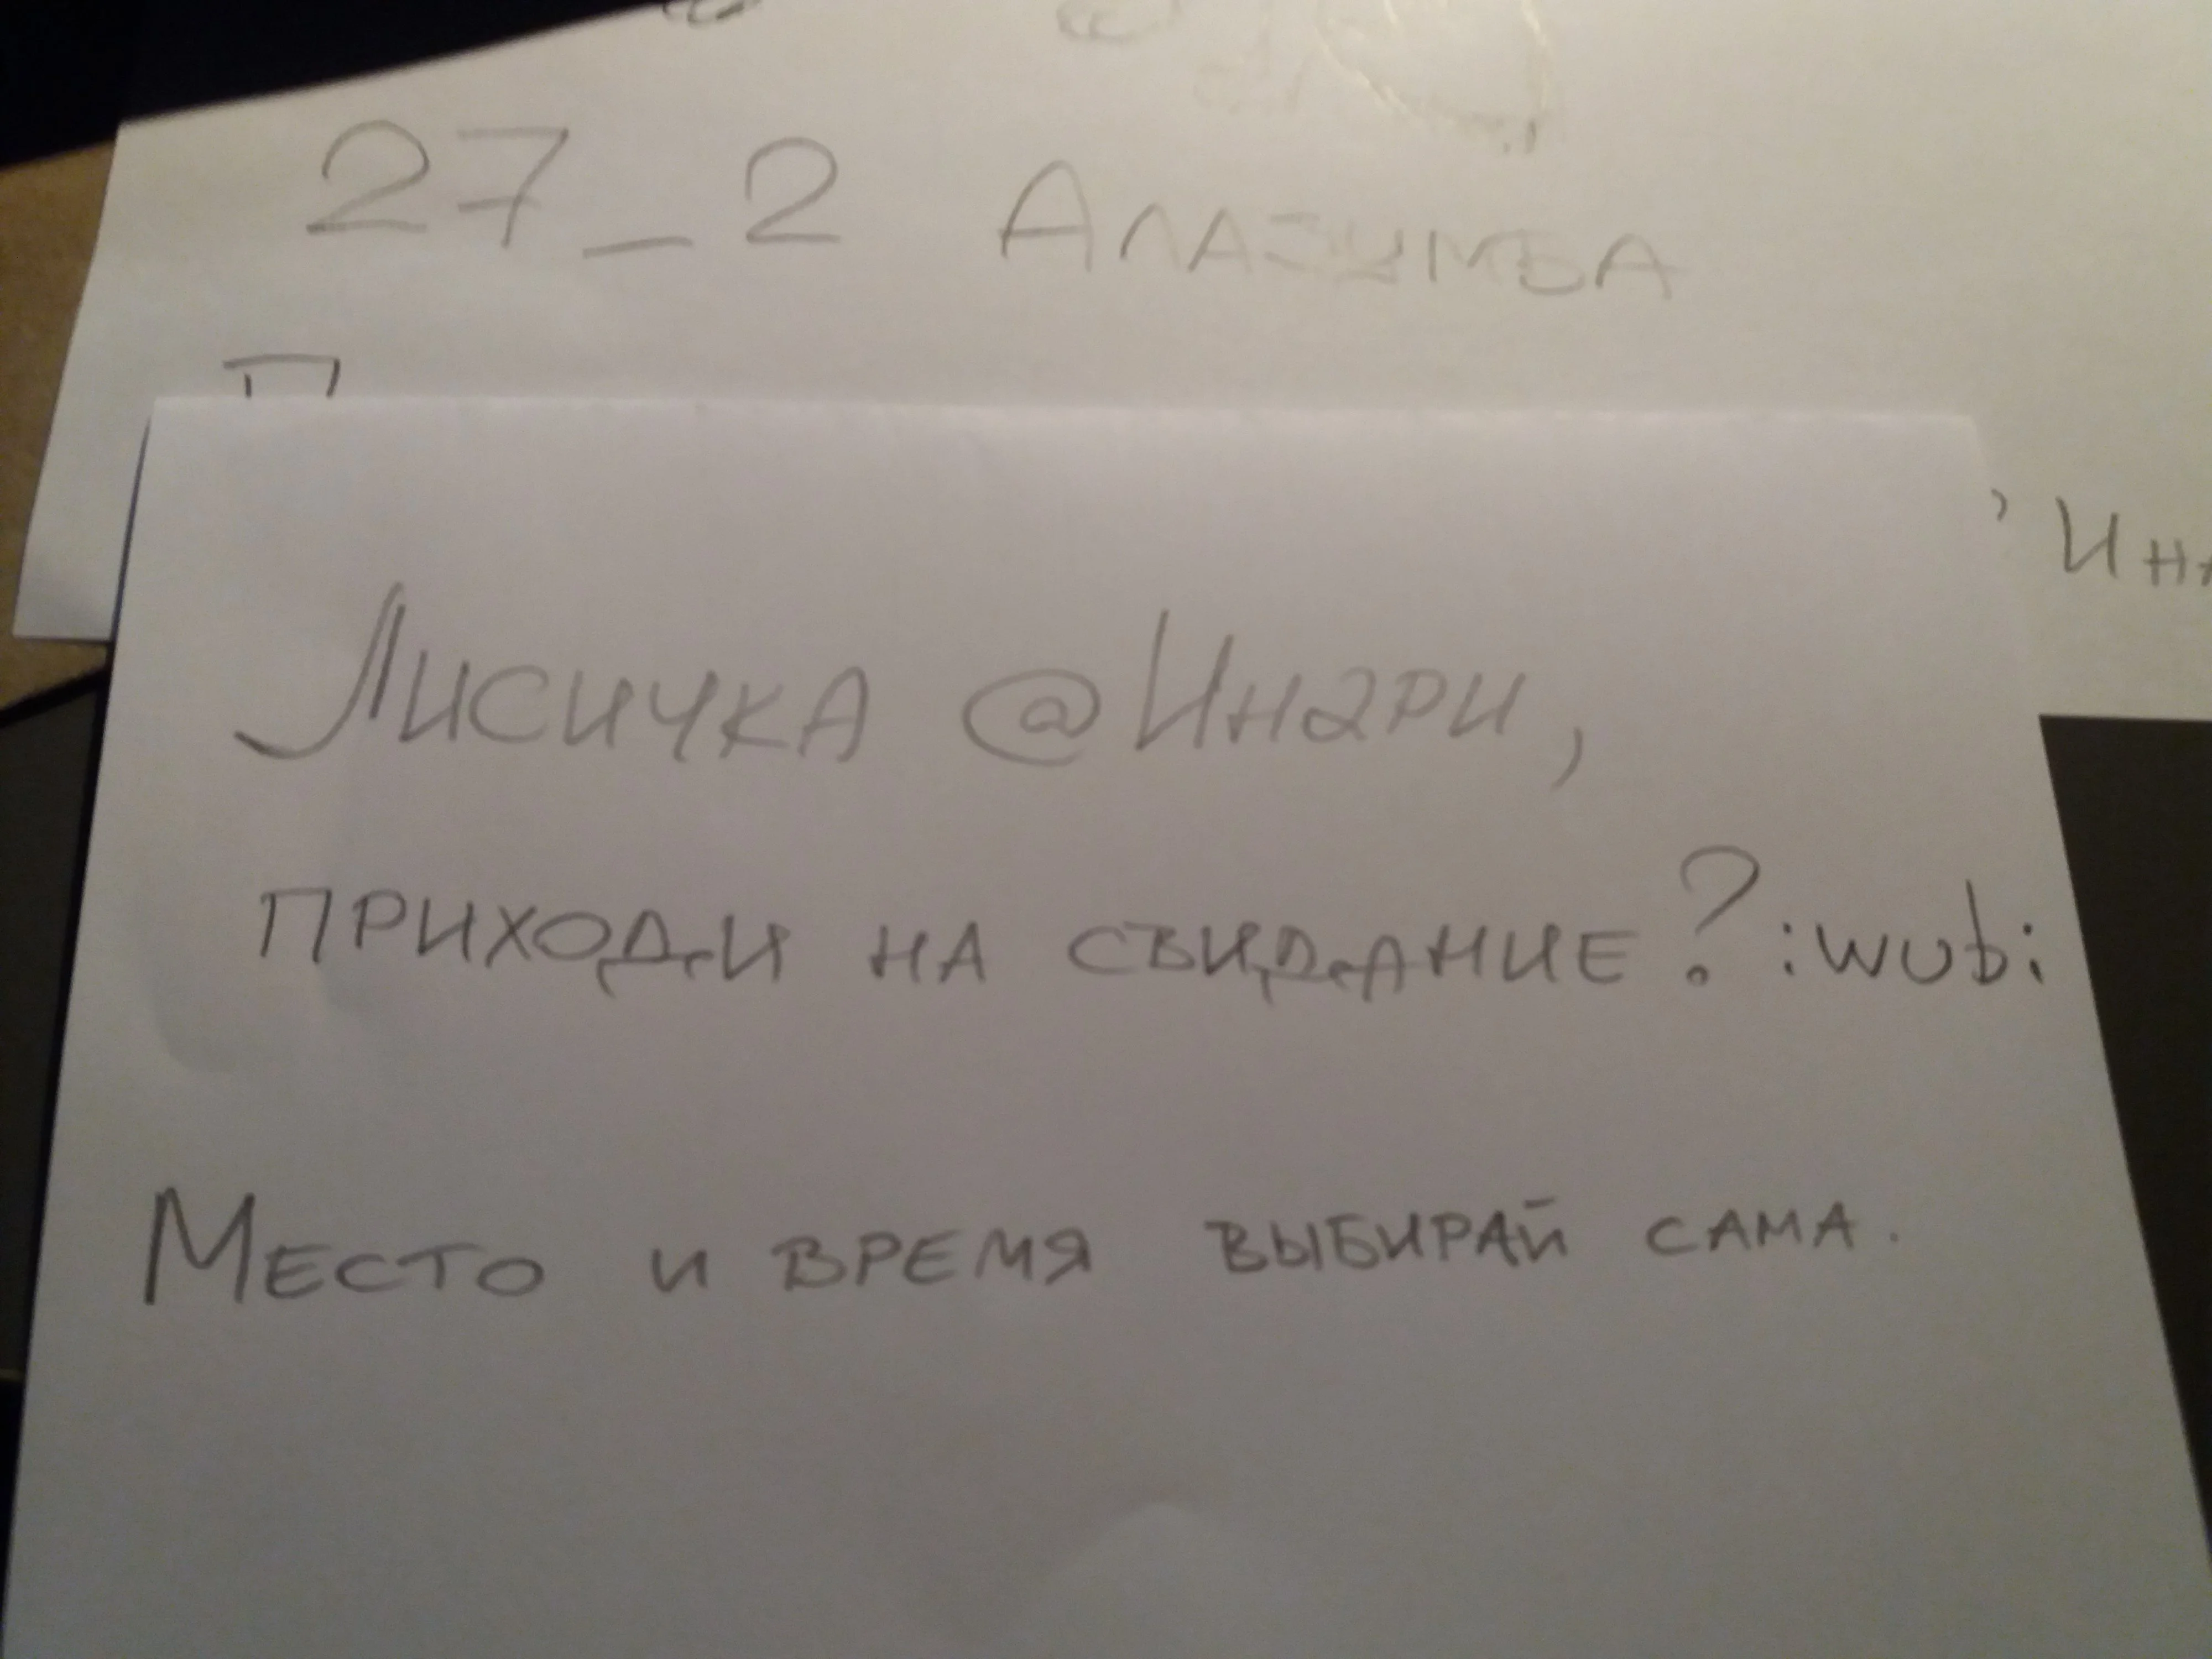 27_2 Алазимба
Лисичка @Инари,
приходи на свидание? :wub:
Место и время выбирай сама.